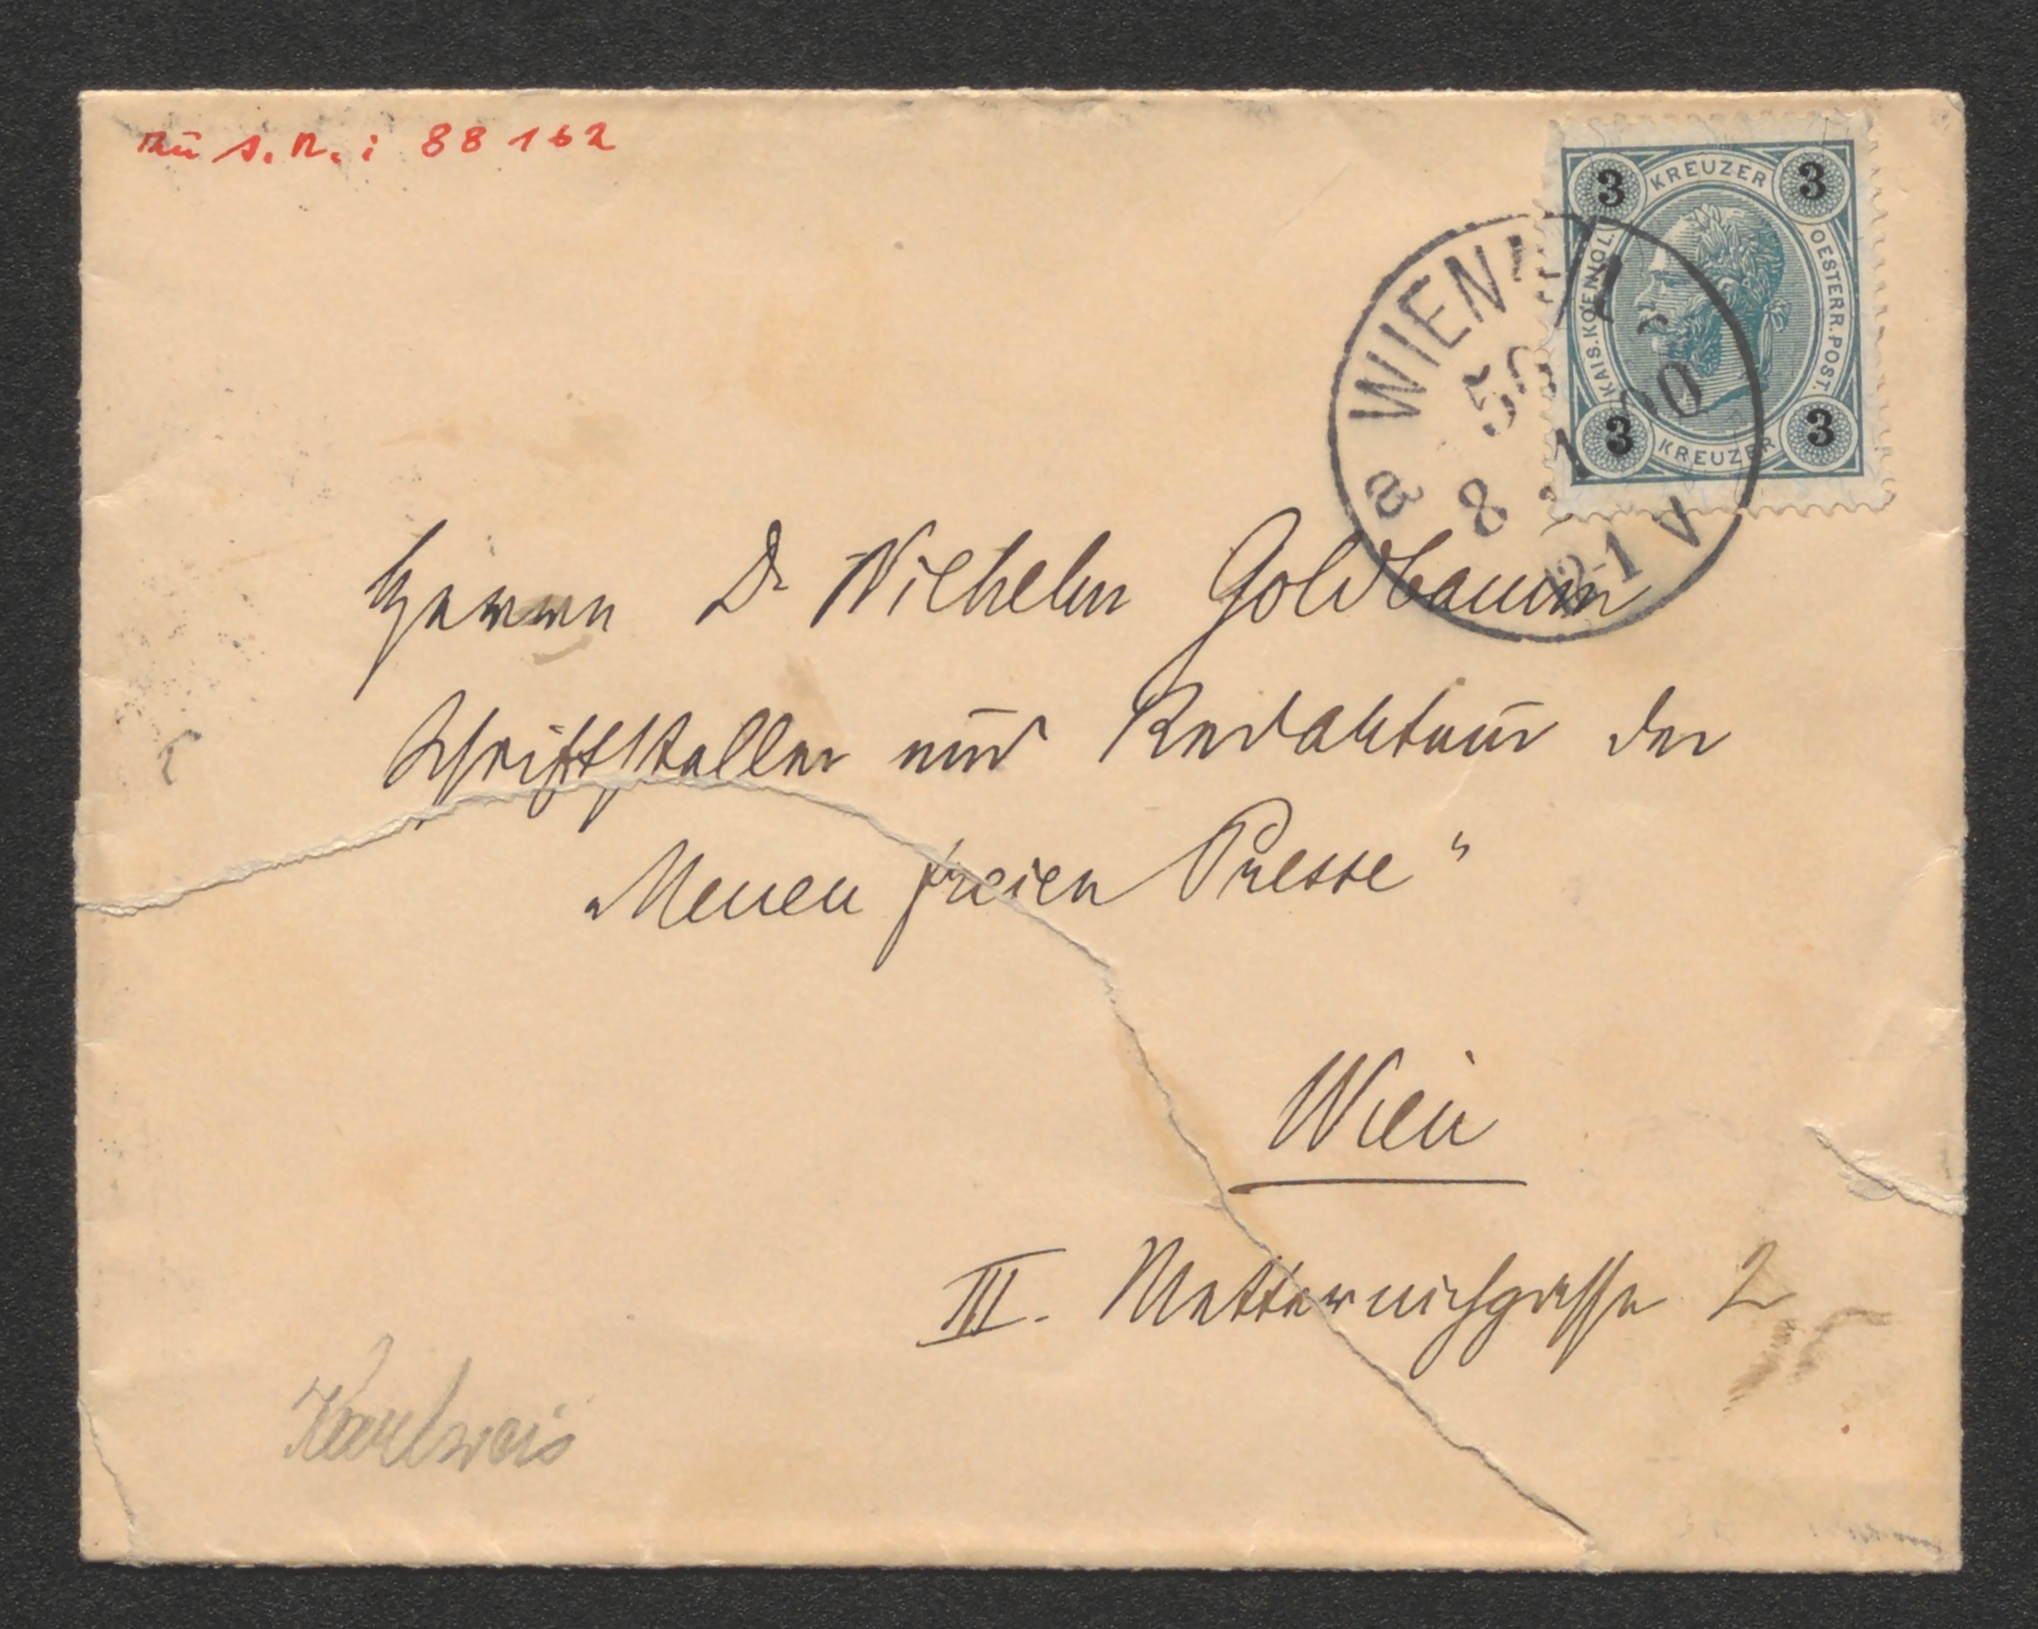 Zu A.N. i 88 162
3 KREUZER 3
KAIS.KOENIGL. OESTERR.POST.
3 KREUZER 3
WIEN
50
8 1 00
12-1 V
a
Herrn Dr Wilhelm Goldbaum
Schriftsteller und Redakteur der
„Neuen freien Presse“
Wien
III. Metternichgasse 2
Karlweis